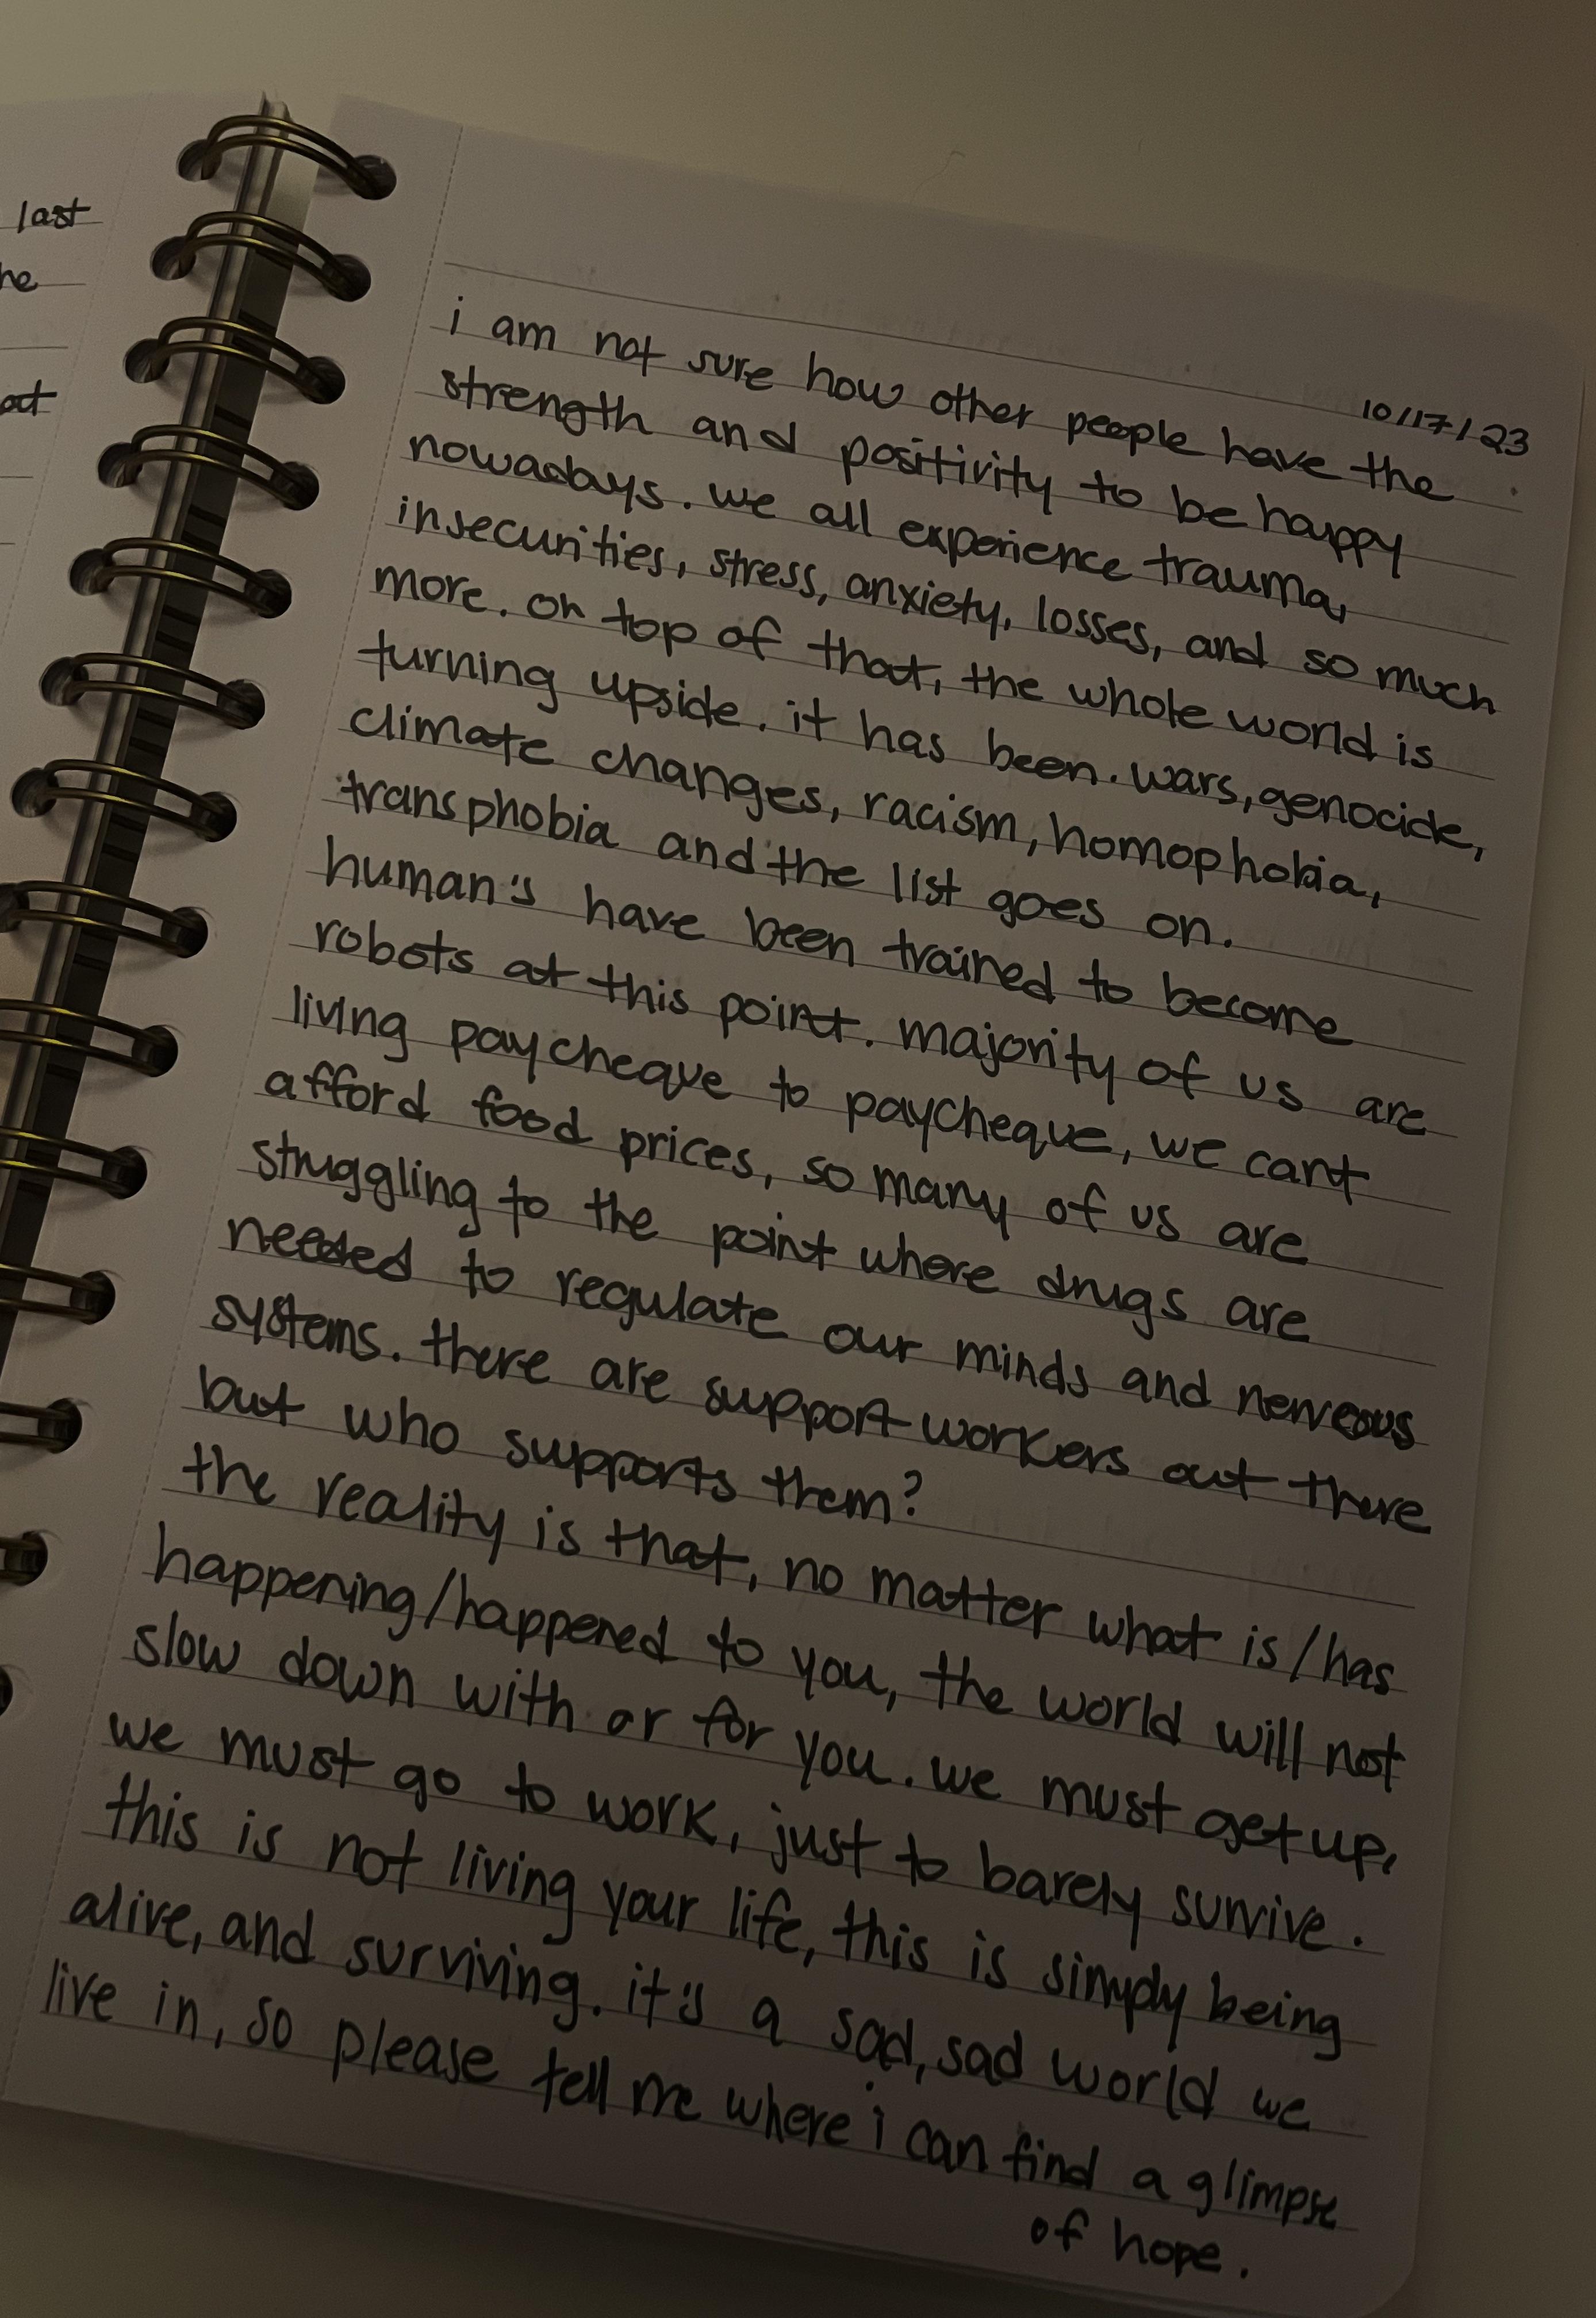 last
he
at
10/17/23
i am not sure how other people have the
strength and positivity to be happy
nowadays. we all experience trauma,
insecurities, stress, anxiety, losses, and so much
more. on top of that, the whole world is
turning upside. it has been. wars, genocide,
climate changes, racism, homophobia,
transphobia and the list goes on.
human's have been trained to become
robots at this point. majority of us are
living paycheque to paycheque, we cant
afford food prices, so many of us are
struggling to the point where drugs are
needed to regulate our minds and nerveous
systems. there are support workers out there
but who supports them?
the reality is that, no matter what is/has
happening/happened to you, the world will not
slow down with or for you. we must get up,
we must go to work, just to barely survive.
this is not living your life, this is simply being
alive, and surviving. it's a sad, sad world we
live in, so please tell me where i can find a glimpse
of hope.